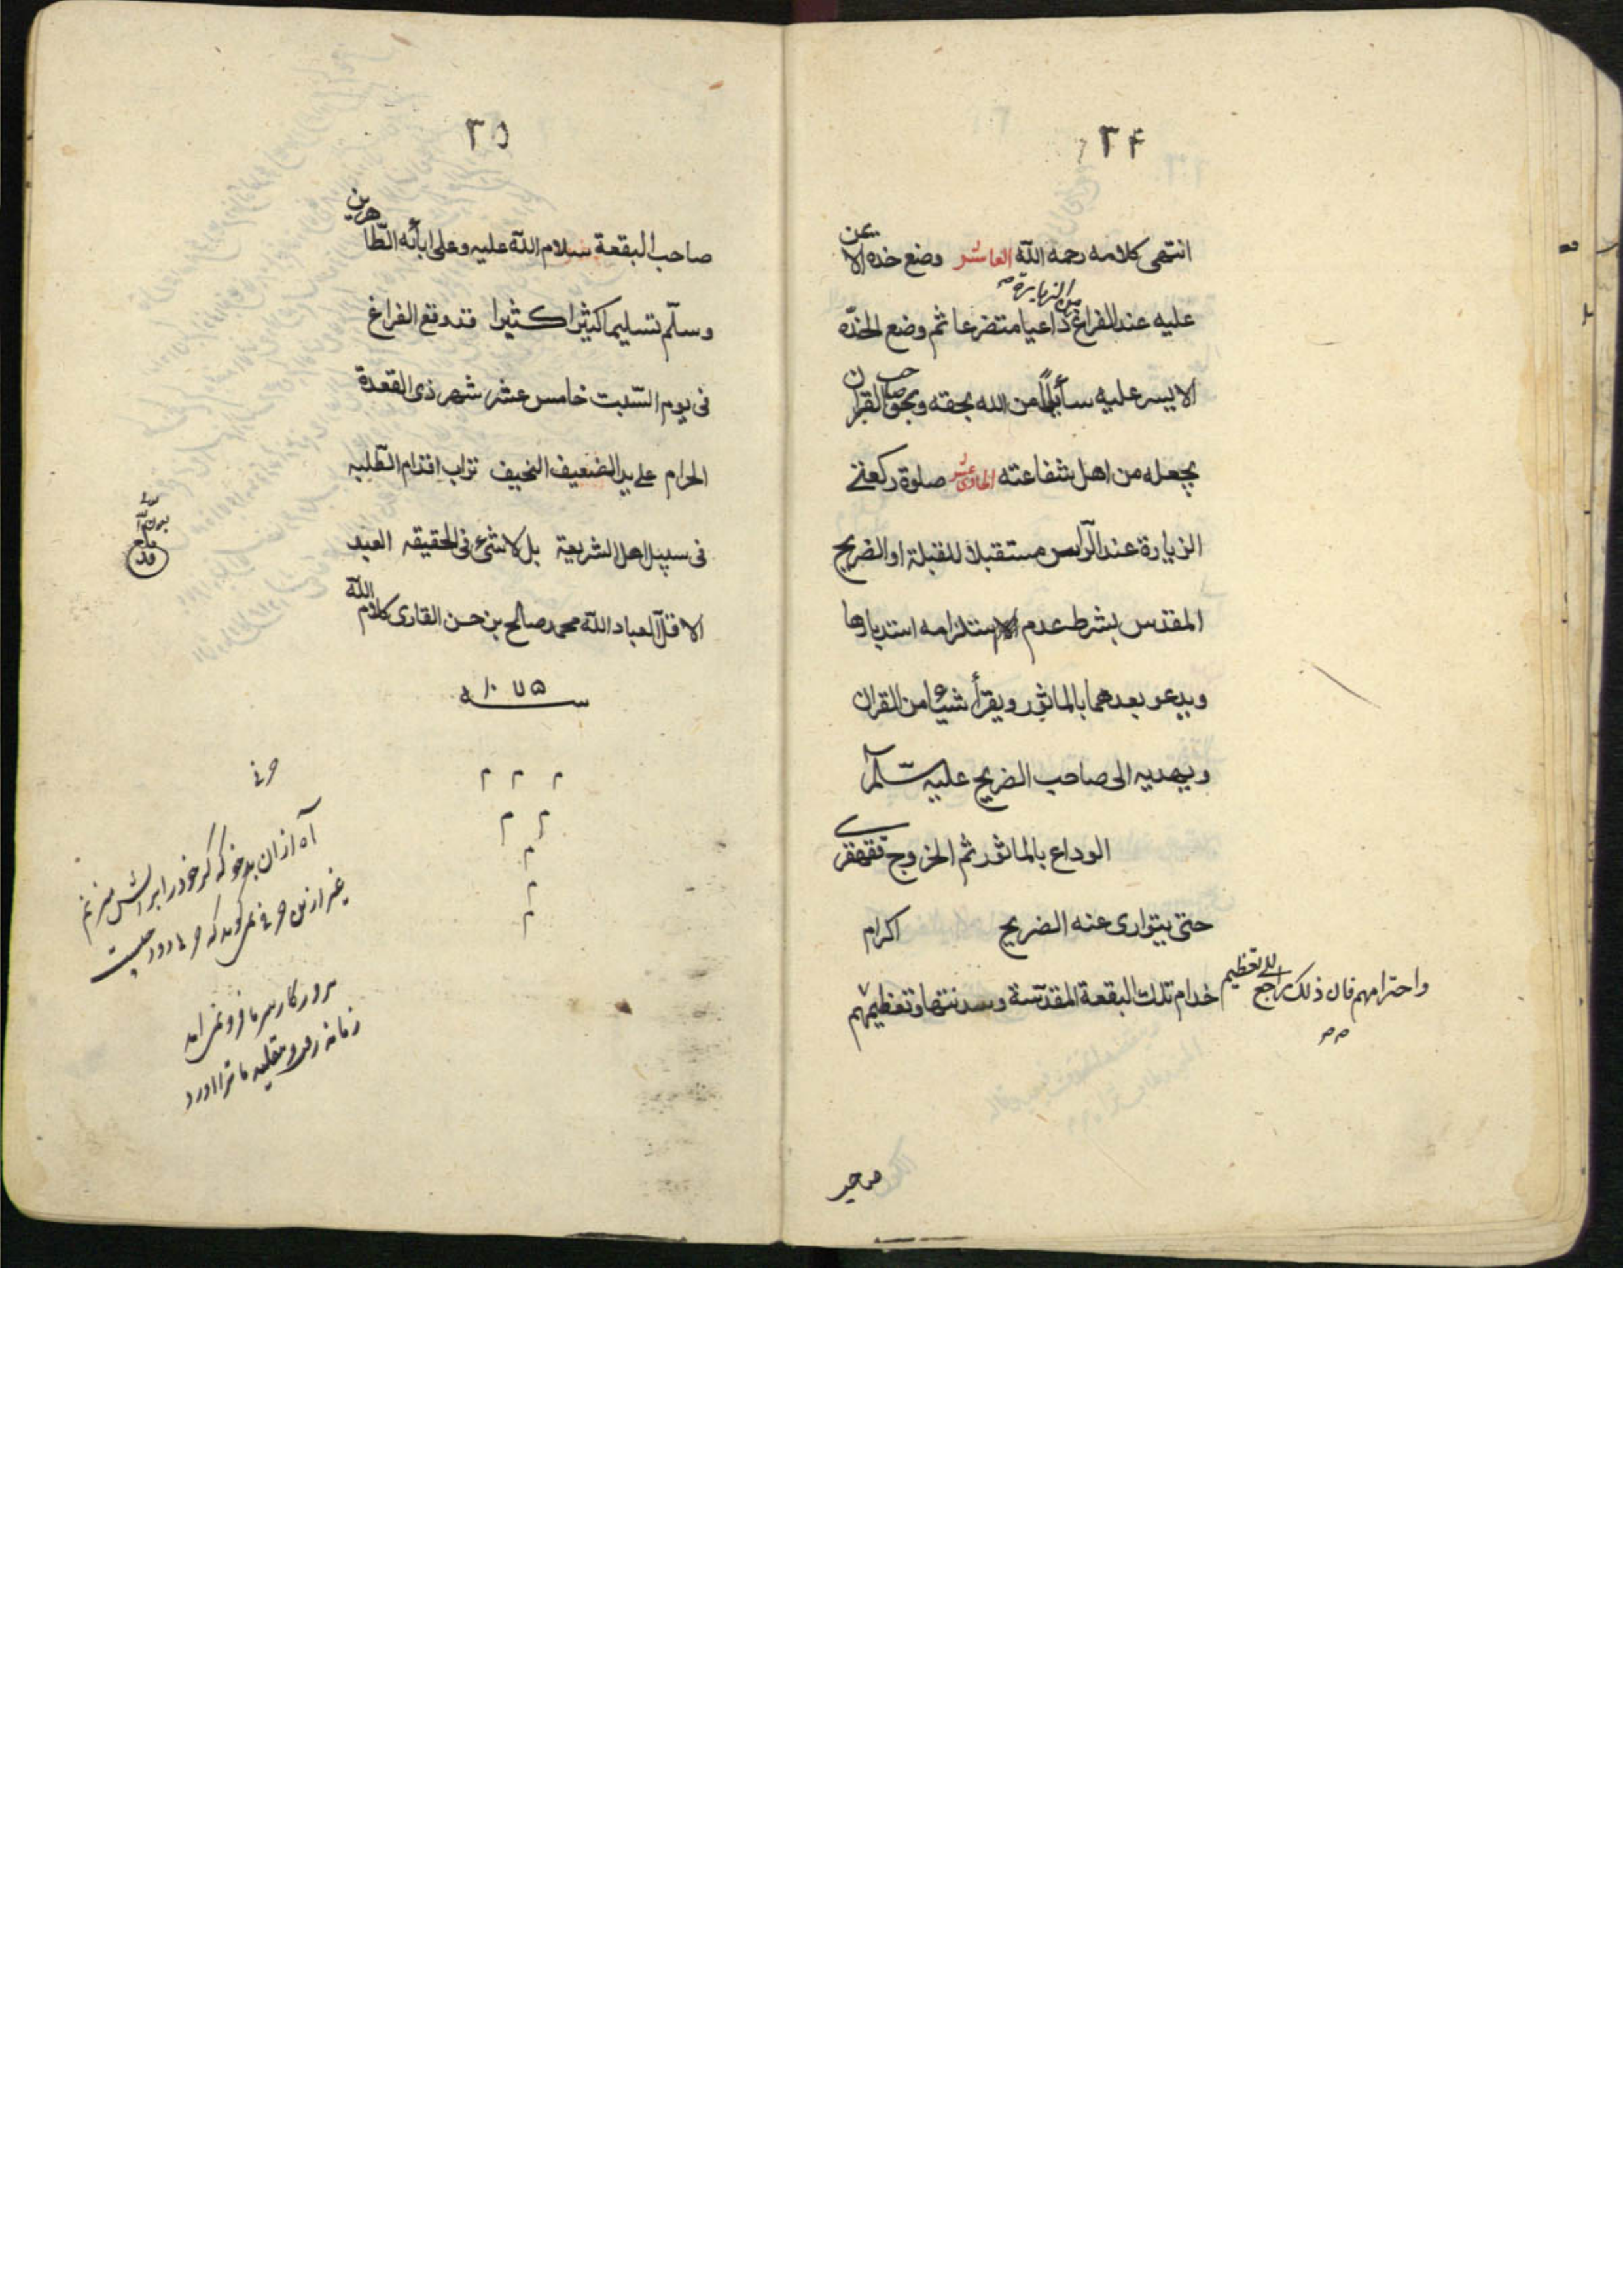 ٣٤
انتهى كلامه رحمه اللّه العاشر وضع خده الايمن
عليه عند الفراغ من الزيارة داعيا متضرعا ثم وضع الخدّه
الايسر عليه سائلا من الله بحقه وبحق صاحب القران
يجعله من اهل شفاعته الحادى عشر صلوة ركعتى
الزيارة عند الرّاس مستقبلا للقبلة او الضريح
المقدس بشرط عدم استلزامه استدبارها
ويدعو بعدهما بالماثور ويقرأ شيئا من القران
ويهديه الى صاحب الضريح عليه
الوداع بالماثور ثم الخروج قهقرى
حتى يتوارى عنه الضريح اكرام
خدام تلك البقعة المقدّسة وسدنتها وتعظيمهم
واحترامهم فان ذلك راجع الى تعظيم
صاحب
٣٥
صاحب البقعة سلام اللّه عليه وعلى ابائه الطّاهرين
وسلّم تسليما كثيرا كثيرا قد وقع الفراغ
فى يوم السّبت خامس عشر شهر ذى القعدة
الحرام على يد الضعيف النحيف تراب اقدام الطّلبه
فى سبيل اهل الشريعة بل لاشىء فى الحقيقه العبد
الاقل لعباد اللّه محمد صالح بن حسن القارى كلام اللّه
سنه ١٠٧٥
م م م
م م
م
م
م
قد بلغ
آه از ان بدخو كه كر خود را بر اتش ميزنم
غير ازين حرفى نمى كويد كه حرفى دود چيست